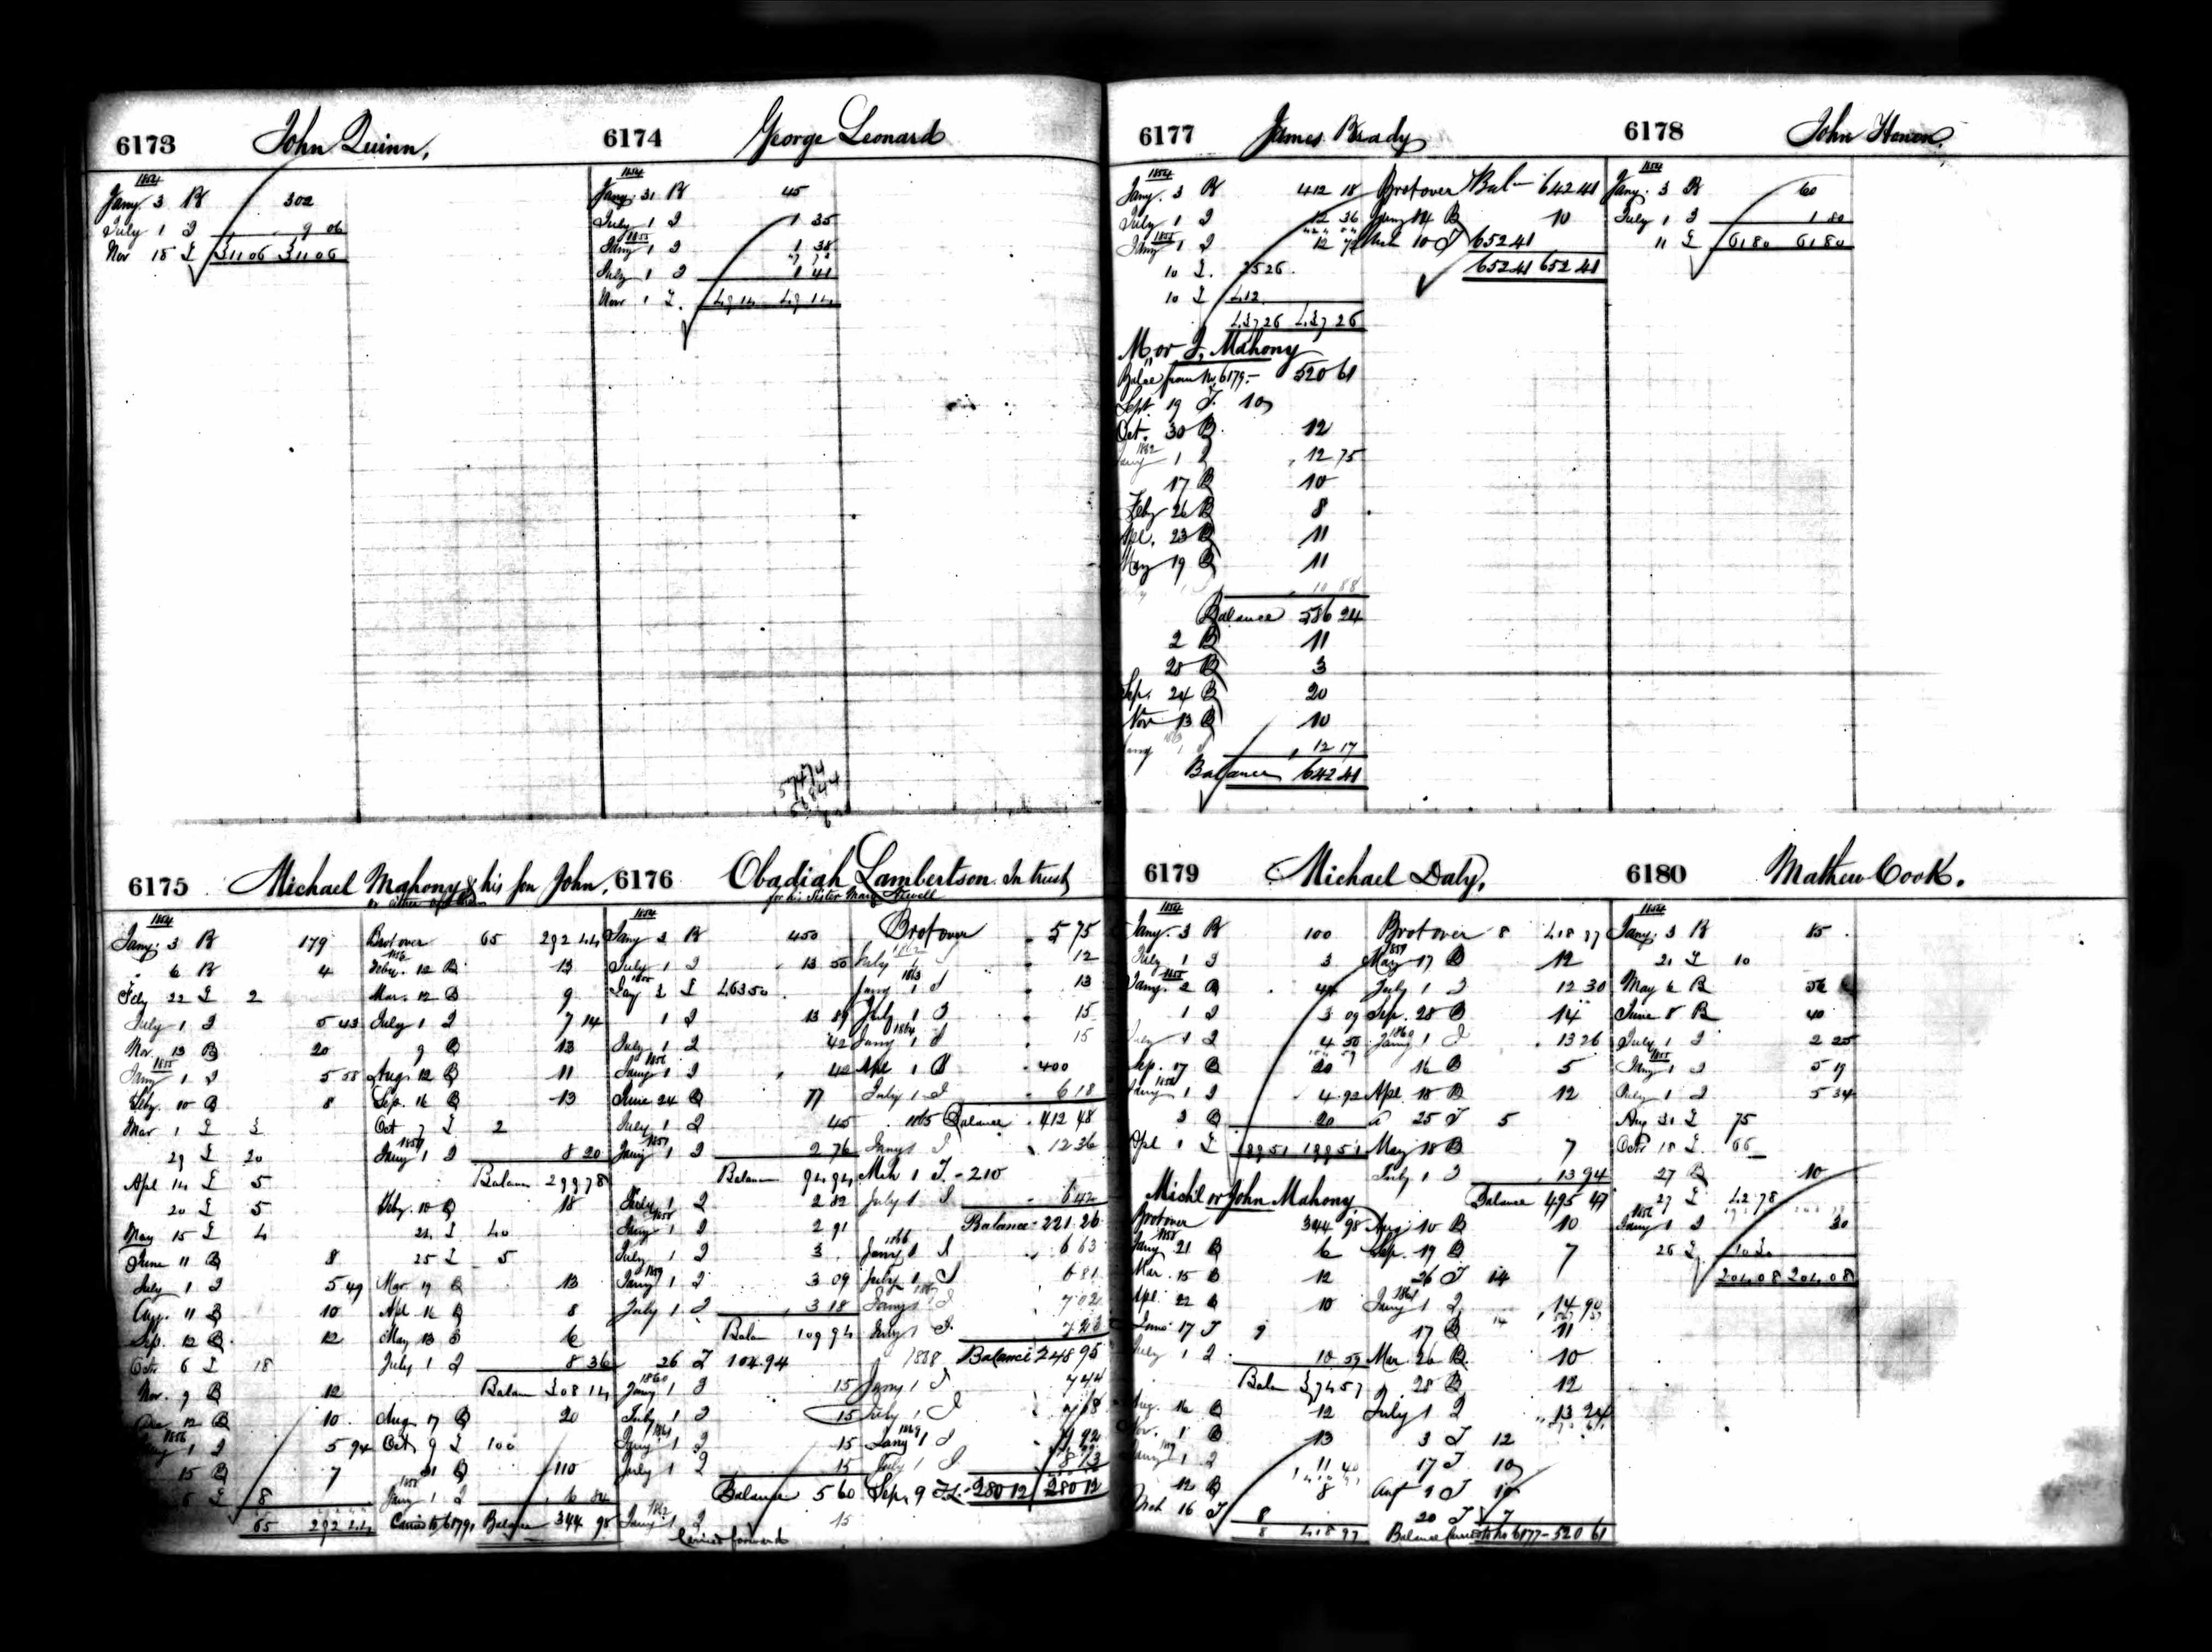 6173 John Quinn,
1854
Jany 3 R 302
July 1 I 9 06
Nov 15 L 311 06 311 06
6174 George Leonard
1854
Jany 31 R 45
July 1 I 1 35
1855
Jany 1 I 1 38
July 1 I 1 41
Nov 1 L. 49 14 49 14
57474
6175 Michael Mahony & his son John,
or either of them
1854
Jany 3 R 179
6 R 4
Feby 22 L 2
July 1 I 5 43
Nov. 13 B 20
1855
Jany 1 I 5 55
Feby. 10 B 8
Mar 1 L 3
29 L 20
Apl 14 L 5
20 L 5
May 15 L 4
June 11 B 8
July 1 I 5 49
Aug. 11 B 10
Sep. 12 B 12
Octr 6 L 18
Nov. 9 B 12
Dec 12 B 10
1856
Jany 1 I 5 94
15 B 7
8
65 292 44
Brot over 65 292 44
1856
Feby. 12 B 13
Mar. 12 B 9
July 1 I 7 14
9 B 13
Aug. 12 B 11
Sep. 16 B 13
Oct 7 L 2
1857
Jany 1 I 8 20
Balance 299 78
Feby. 10 B 18
24 L 40
25 L 5
Mar. 19 B 13
Apl. 16 B 8
May 13 B 6
July 1 I 8 36
Balan 308 14
Aug. 17 B 20
Oct 9 L 100
31 B 110
1858
Jany 1 I 6 84
Carried to 6179, Balance 344 98
6176 Obadiah Lambertson In trust
for his Sister Mary Newell
1854
Jany 3 R 450
July 1 I 13 50
1855
Jay 2 L 463 50
1 I 13 89
July 1 I 42
1856
Jany 1 I 42
June 24 B 77
July 1 I 45
1857
Jany 1 I 2 76
Balance 94 94
July 1 I 2 82
1858
Jany 1 I 2 91
July 1 I 3
1859
Jany 1 I 3 09
July 1 I 3 18
Balan 109 94
26 L 104 94
1860
Jany 1 I 15
July 1 I 15
1861
Jany 1 I 15
July 1 I 15
Balance 5 60
1862
Jany 1 I 15
Carried forward
Brot over 5 75
1862
July 1 I 12
1863
Jany 1 I 13
July 1 I 15
1864
Jany 1 I 15
Apl 1 B 400
July 1 I 6 18
1865 Balance 412 48
Jany 1 I 12 36
Mch 1 T. 210
July 1 I 6 42
Balance 221 26
1866
Jany 1 I 6 63
July 1 I 6 81
1867
Jany 1 I 7 02
July 1 I 7 23
1868 Balance 248 95
Jany 1 I 7 44
July 1 I 7 68
1869
Jany 1 I 7 92
July 1 I 8 13
Sep. 9 280 12 280 12
6177 James Brady
1854
Jany. 3 R 412 18
July 1 I 12 36
1855
Jany 1 I 12 72
10 L. 25 26
10 L 412
437 26 437 26
M, or J, Mahony
Balce from No. 6179.- 520 61
Sept. 19 T. 10
Oct. 30 B 12
1862
Jany 1 I 12 75
17 B 10
Feby 26 B 8
Apl. 23 B 11
May 19 B 11
Balance 586 24
2 B 11
28 B 3
Sep. 24 B 20
Nov 13 B 10
Jany 1 I 12 17
Balance 642 41
Brot over Bal 642 41
Jany 14 B 10
Mch 10 T 652 41
652 41 652 41
6178 John
1854
Jany. 3 R 60
July 1 I 1 80
11 L 61 80 61 80
6179 Michael Daly,
1854
Jany. 3 R 100
July 1 I 3
1855
Jany. 2 B 44
1 I 3 09
July 1 I 4 50
Sep. 17 B 20
1856
Jany 1 I 4 92
3 B 20
Apl 1 L 199 51 199 51
Michl or John Mahony
Brot over 344 98
1858
Jany 21 B 6
Mar. 15 B 12
Apl 22 B 10
June 17 T 9
July 1 I 10 59
Balan 374 57
Aug. 16 B 12
Nov. 1 B 13
1859
Jany 1 I 11 40
12 B 8
Mch 16 T 8
8 418 97
Brot over 8 418 97
1859
May 17 B 12
July 1 I 12 30
Sep. 28 B 14
1860
Jany 1 I 13 26
16 B 5
Apl. 18 B 12
25 T 5
May 18 B 7
July 1 I 13 94
Balance 495 47
Aug 10 B 10
Sep. 19 B 7
26 T 14
1861
Jany 1 I 14 90
17 B 11
Mar. 26 B 10
28 B 12
July 1 I 13 24
3 T 12
17 T 10
Aug 9 T 10
20 T 7
Balance Carried to No 6177-520 61
6180 Mathew Cook.
1854
Jany. 3 R 85
21 L 10
May 6 B 56
June 8 B 40
July 1 I 2 25
1855
Jany 1 I 5 19
July 1 I 5 34
Aug 31 L 75
Octr 18 L 66
27 B 10
27 L 42 78
1856
Jany 1 I 30
26 L 10 30
204 08 204 08